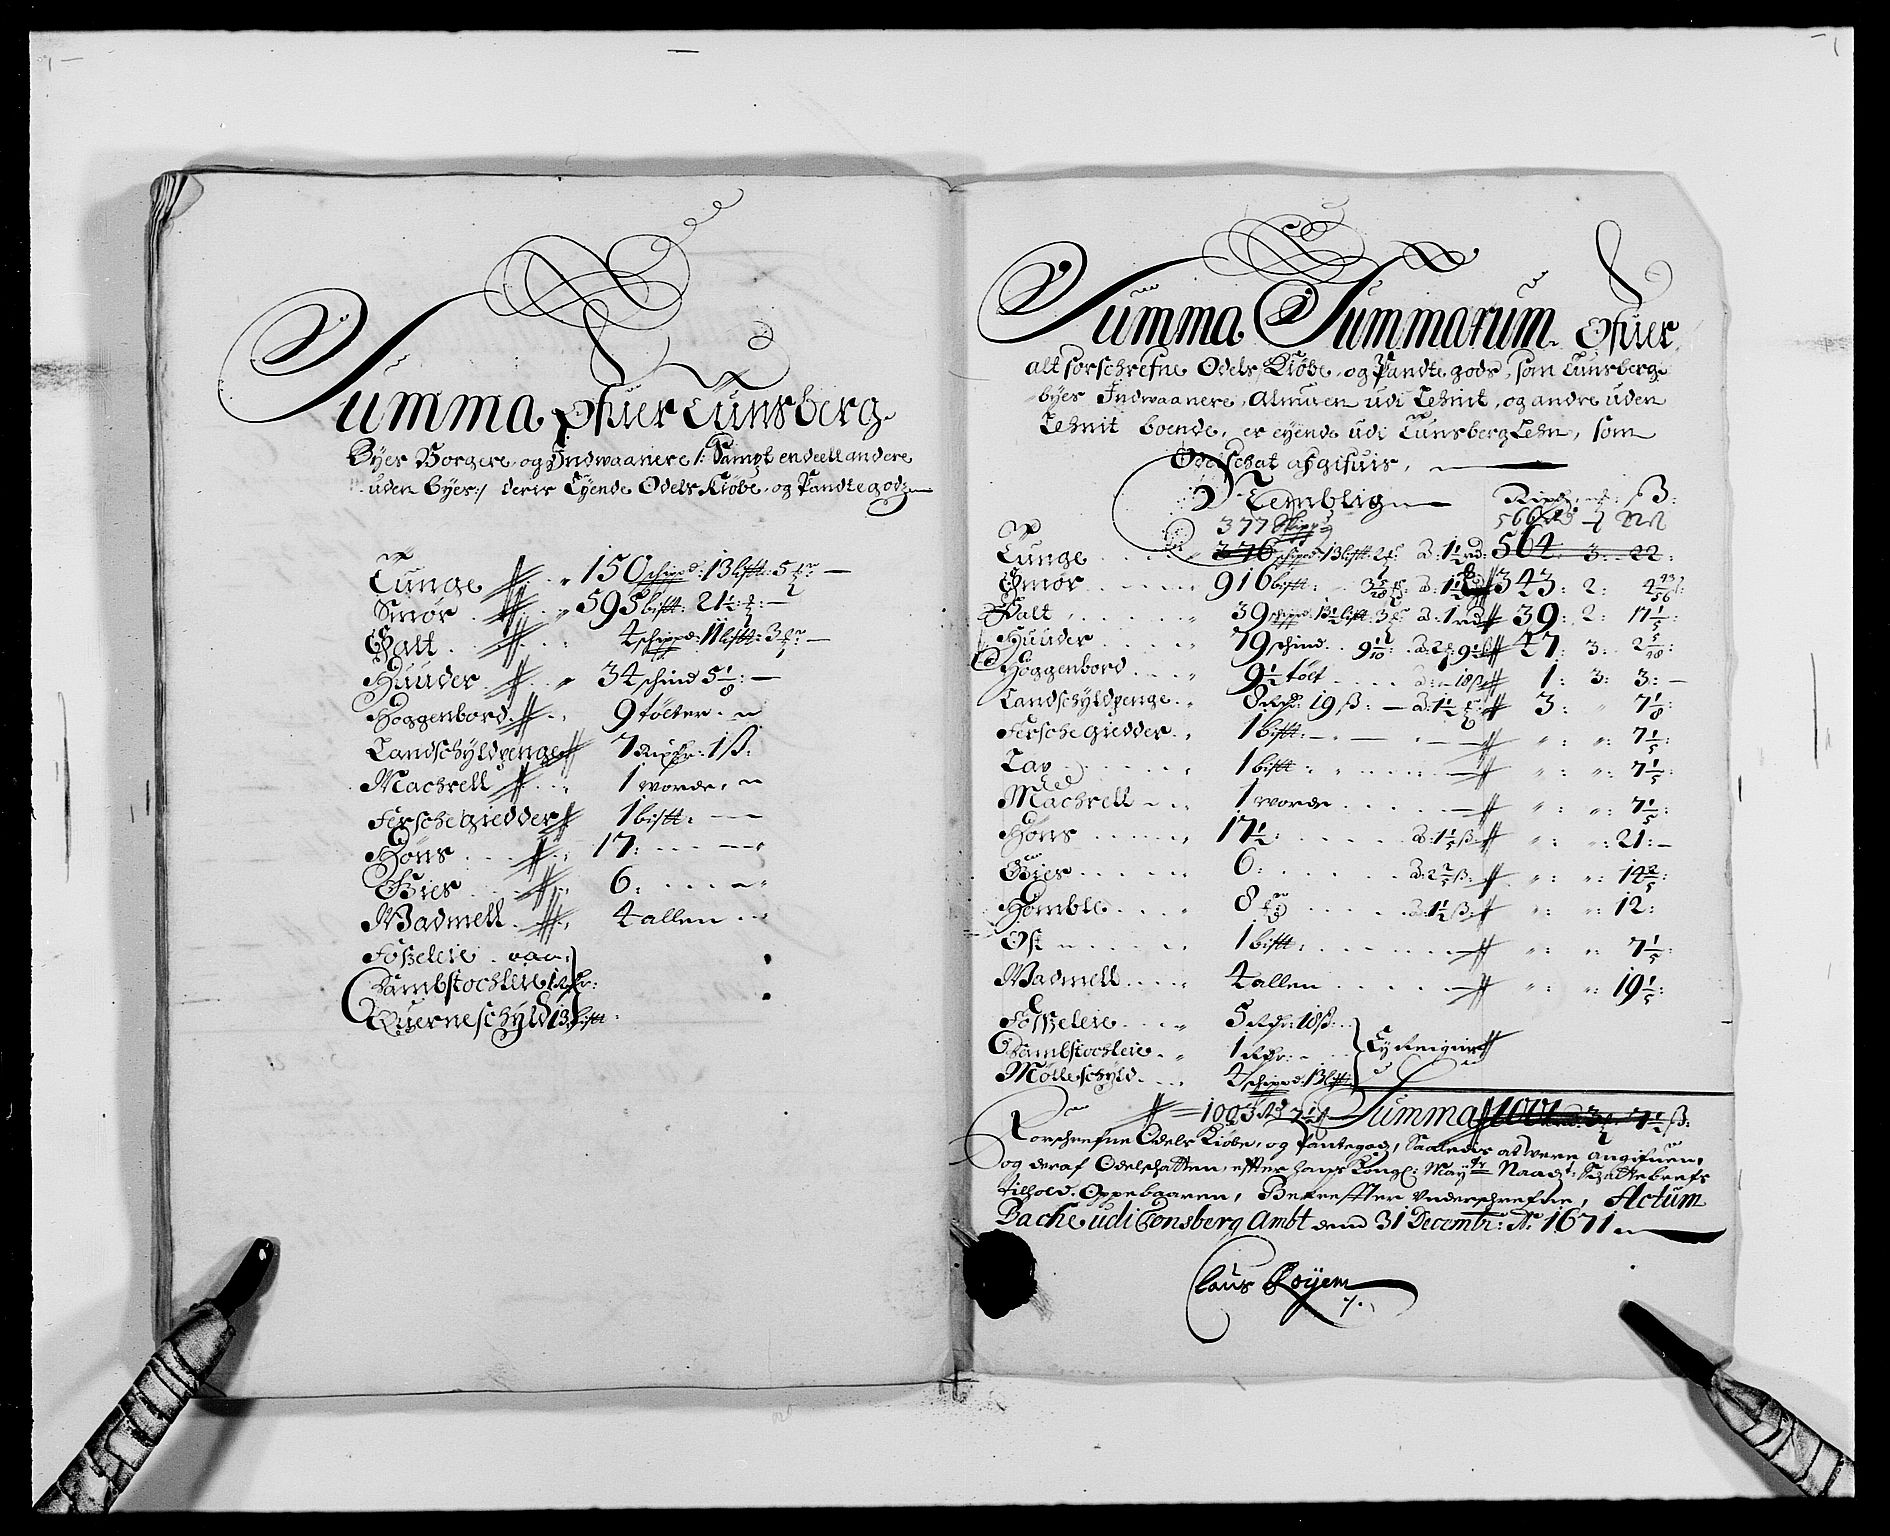 Summa Ofuer Tunsberg
Byes Borgere, og Indwaanere /: Sampt endeell andere
uden byes :/ deris Eyende Odels Kiøbe, og Pandtegodz
Tunge 150 schippd: 13 lis℔: 5
Smør 595 bis℔: 21 1/2
Salt 4 schippd: 11 lis℔: 3
Huuder 34 schind 5 1/8
Hoggenbord 9 tølter
Landschyldpenge 7 Rixdr: 1 ß:
Machrell 1 worde
Fersche giedder 1 bis℔:
Høns 17:
Gies 6:
Wadmell 4 allen
Foßeleie
Sambstochleie 1 Rdr:
Querneschyld 13 bis℔:
Summa Summarum Ofuer
alt forschrefne Odels, Kiøbe, og Pandte gods, som Tunsberge
byes Indwaanere, Almuen udi Lehnit, og andre uden
Lehnit boende, er eyende udi Tunsberg Lehn, som
Odelschat afgifuis,
Nemblig Rixdr: ß:
377 Schippd 566
Tunge 376 schippd: 13 lis℔: 2 a: 1 1/2 rd: 564: 3: 22:
Smør 916 bis℔: 343: 2:
Salt 39 schippd: 13 1/2 lis℔: 3 a: 1 rd 39: 2: 17 1/5:
Huuder 79 schind: 9 1/10: 47: 3:
Hoggenbord 9 1/2 tølt a: 18 ß 1: 3: 3:
Landschyldpenge 8 Rdr: 19 ß: 3: 7 1/8:
Fersche giedder 1 bis℔: 7 1/5:
Lax 1 bis℔: 7 1/5:
Machrell 1 worde 7 1/5:
Høns 17 1/2: a: 1 1/5 ß 21:
Gies 6: a: 2 2/5 ß: 14 2/5:
Homble 8 a: 1 1/2 ß 12:
Ost 1 bis℔: 7 1/5:
Wadmell 4 allen 19 1/5:
Foßeleie 5 Rdr: 18 ß:
Sambstochleie 1 Rdr: Ey Reignit
Mølleschyld 4 schippd: 13 lis℔:
1003 Rd Summa 1001 3 7 1/2 ß:
Forschrefne Odels Kiøbe, og Pantegodz, Saaledis at were angifuen,
og deraf Odelschatten, effter hans Kongl: Mayts Naadigste Schattebrefs
tilhold, Oppebaaren, Bekreffter Underschrefne, Actum
Bache udi Tonsberg Ambt dend 31 Decembr: Ao: 1671
Claus Røyem